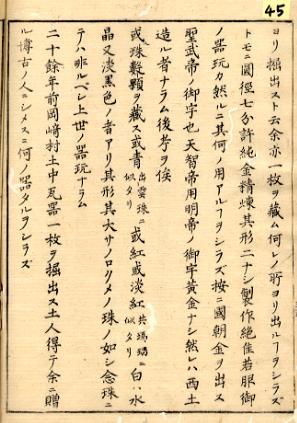 45
ヨリ掘出スト云余亦一枚ヲ藏ム何レノ所ヨリ出ルヲシラズ
トモニ圓徑七分許純金精煉其形二ナシ製作絶佳若服御
ノ器玩カ然ルニ其何ノ用アルヲシラズ按ニ國朝金ヲ出ス
聖武帝ノ御宇也天智帝用明帝ノ御宇黄金ナシ然レハ西土
造ル者ナラム後考ヲ俟
或珠數顆ヲ藏ス或青出雲珠ニ似タリ或紅或淡紅共瑪瑙ニ似タリ白ハ水
晶又淡黒色ノ者アリ其形其大サノロクメノ珠ノ如シ念珠ニ
テハ非ルベシ上世ノ器玩ナラム
二十餘年前岡﨑村土中瓦器一枚ヲ掘出ス土人得テ余ニ贈
ル博古ノ人ニシメスニ何ノ器タルヲシラズ